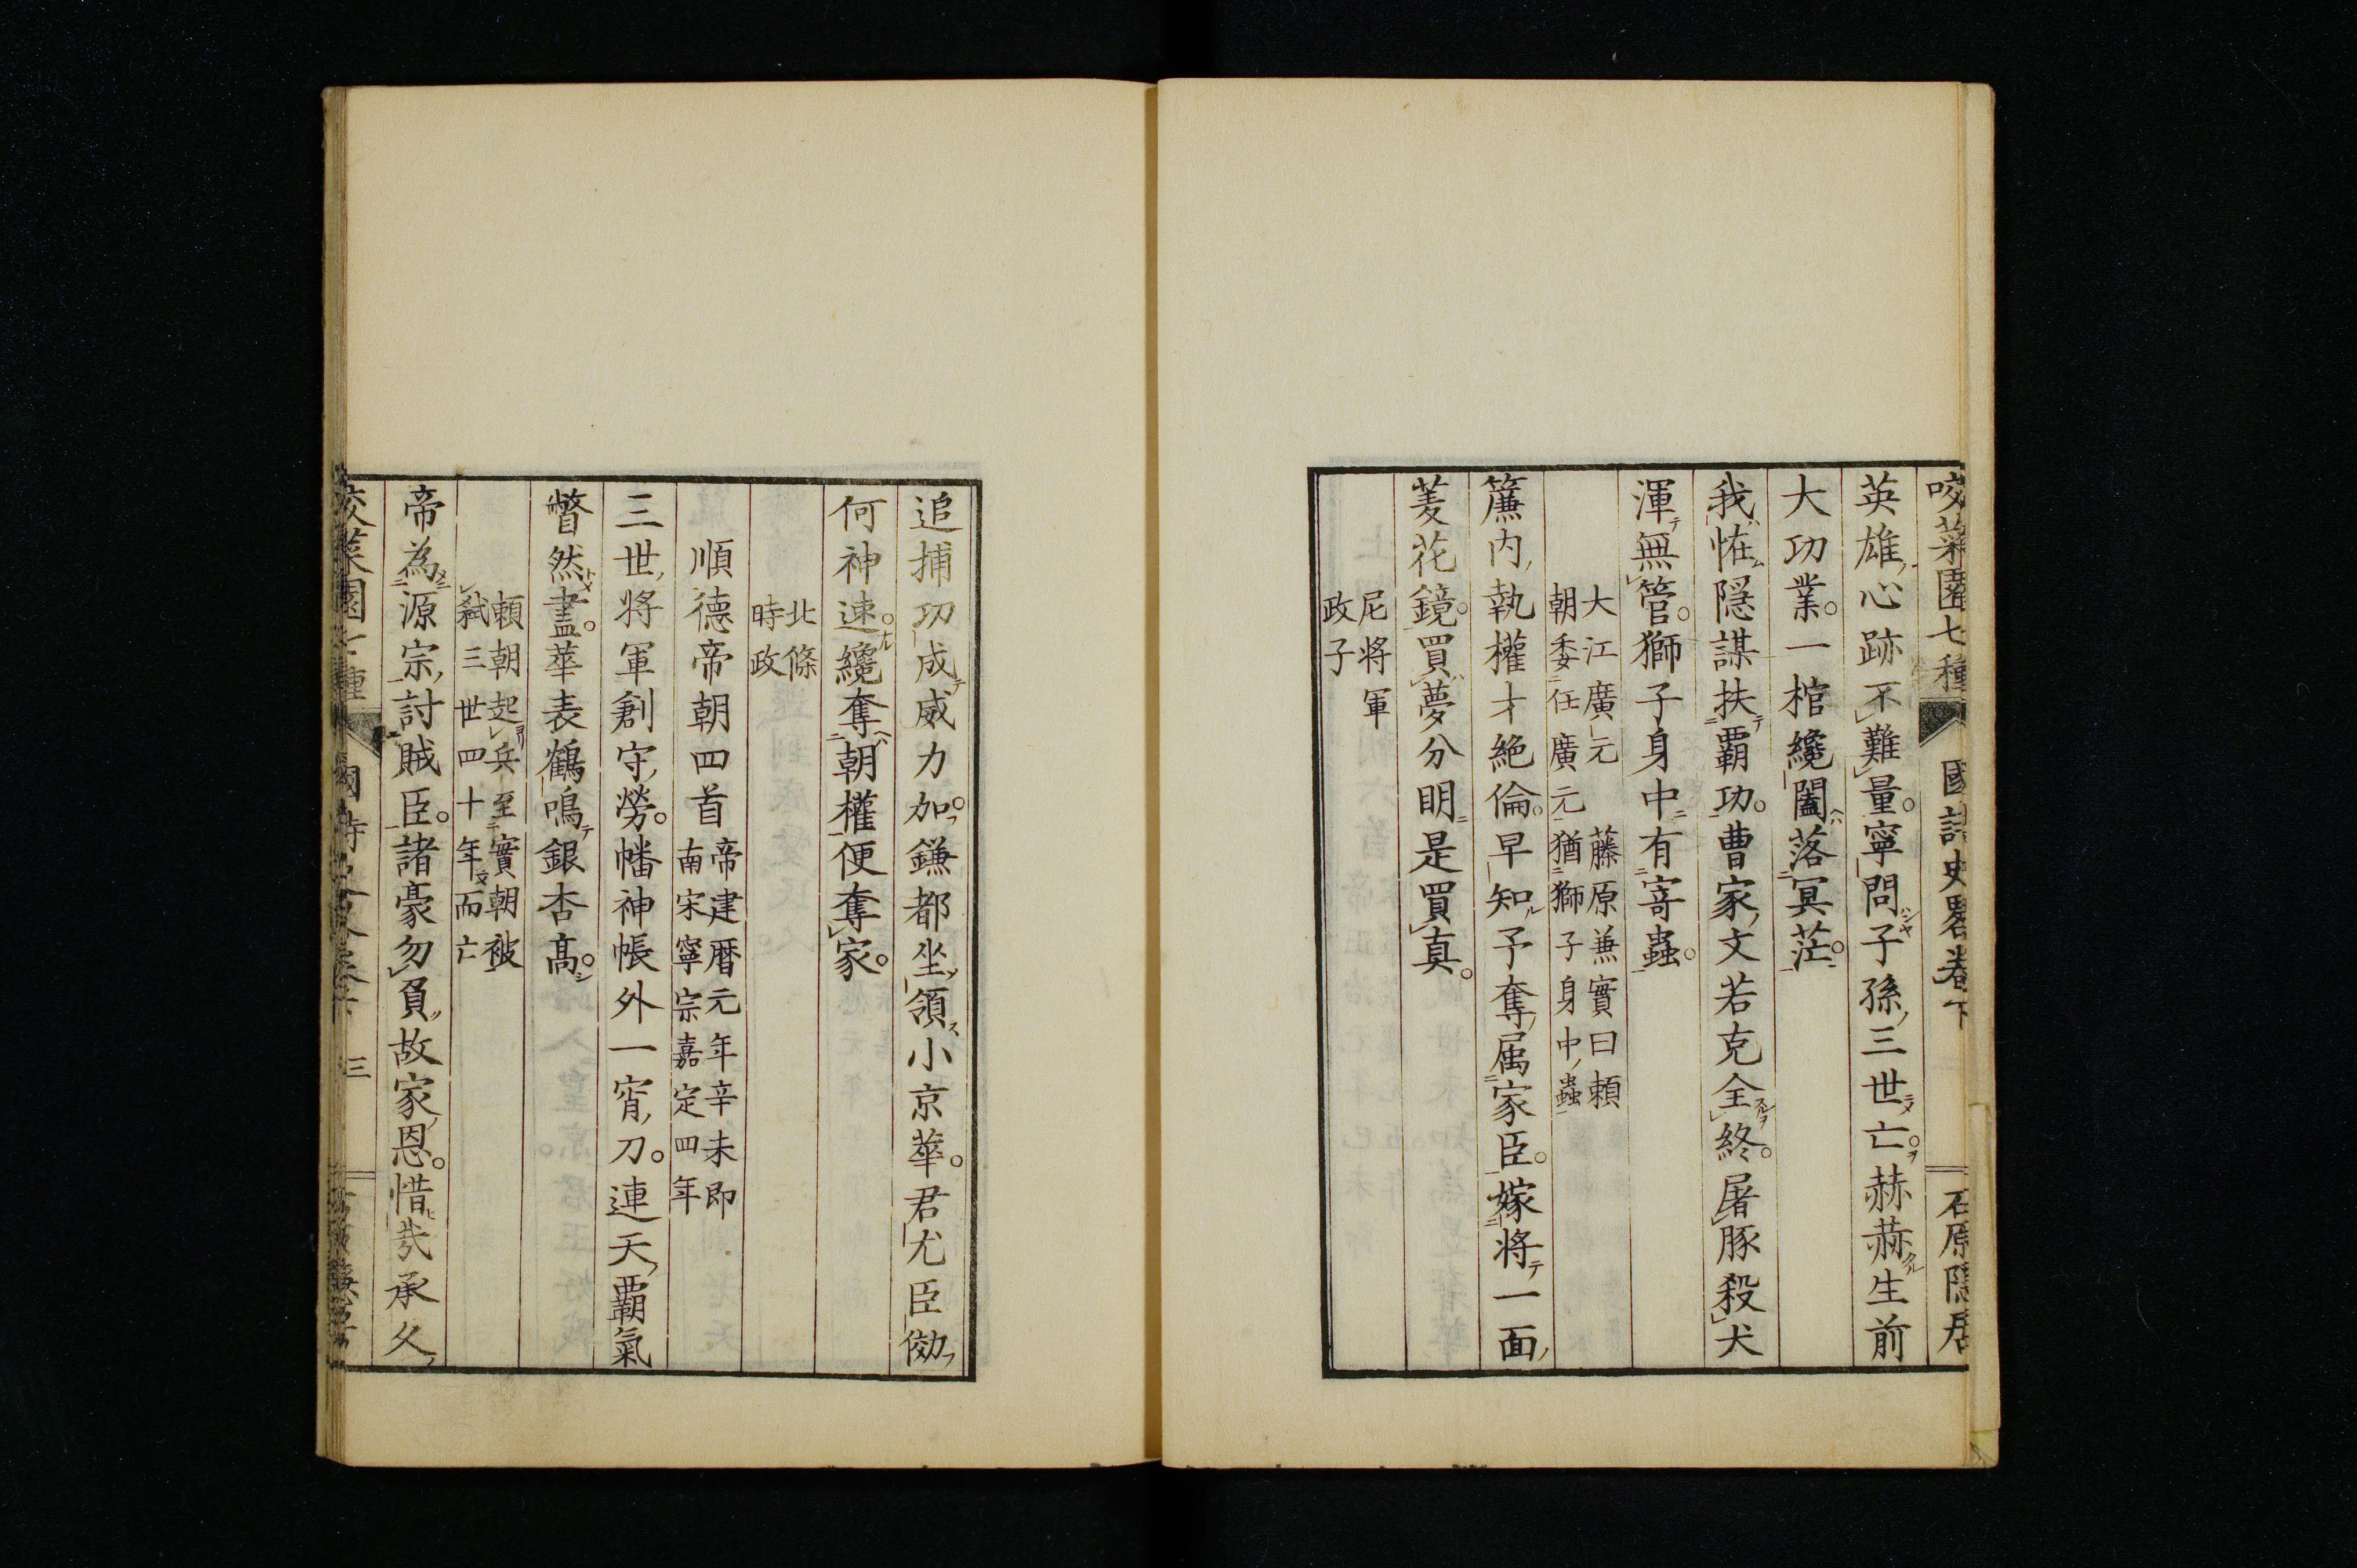 咬菜園七種 國詩史畧卷下 石原隱居
英雄心跡不難量。寧問子孫三世亡。赫赫生前
大功業。一棺纔闔落冥茫。
我怪隱謀扶覇功。曹家文若克全終。屠豚殺犬
渾無管。獅子身中有寄蟲。
大江廣元 藤原兼實曰頼
朝委任廣元猶獅子身中蟲
簾内執權才絶倫。早知予奪属家臣。嫁将一面
菱花鏡。買夢分明是買真。
尼将軍
政子
追捕功成威力加。鎌都坐領小京華。君尤臣傚
何神速。纔奪朝權便奪家。
北條
時政
順德帝朝四首
帝建暦元年辛未即
南宋寧宗嘉定四年
三世将軍創守勞。幡神帳外一宵刀。連天覇氣
瞥然盡。華表鶴鳴銀杏髙。
頼朝起兵至實朝被
弑三世四十年而亡
帝為源宗討賊臣。諸豪勿負故家恩。惜哉承久
咬菜園七種 國詩史畧卷下 三